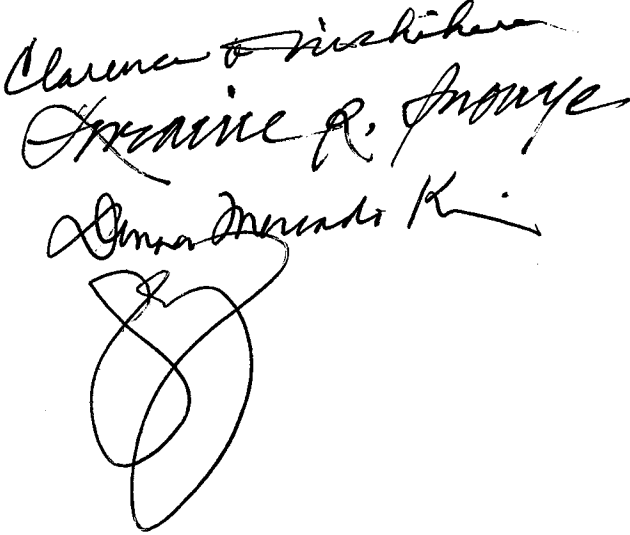 Clarence Nishihara
Lorraine R. Inouye
Donna Mercado Kim